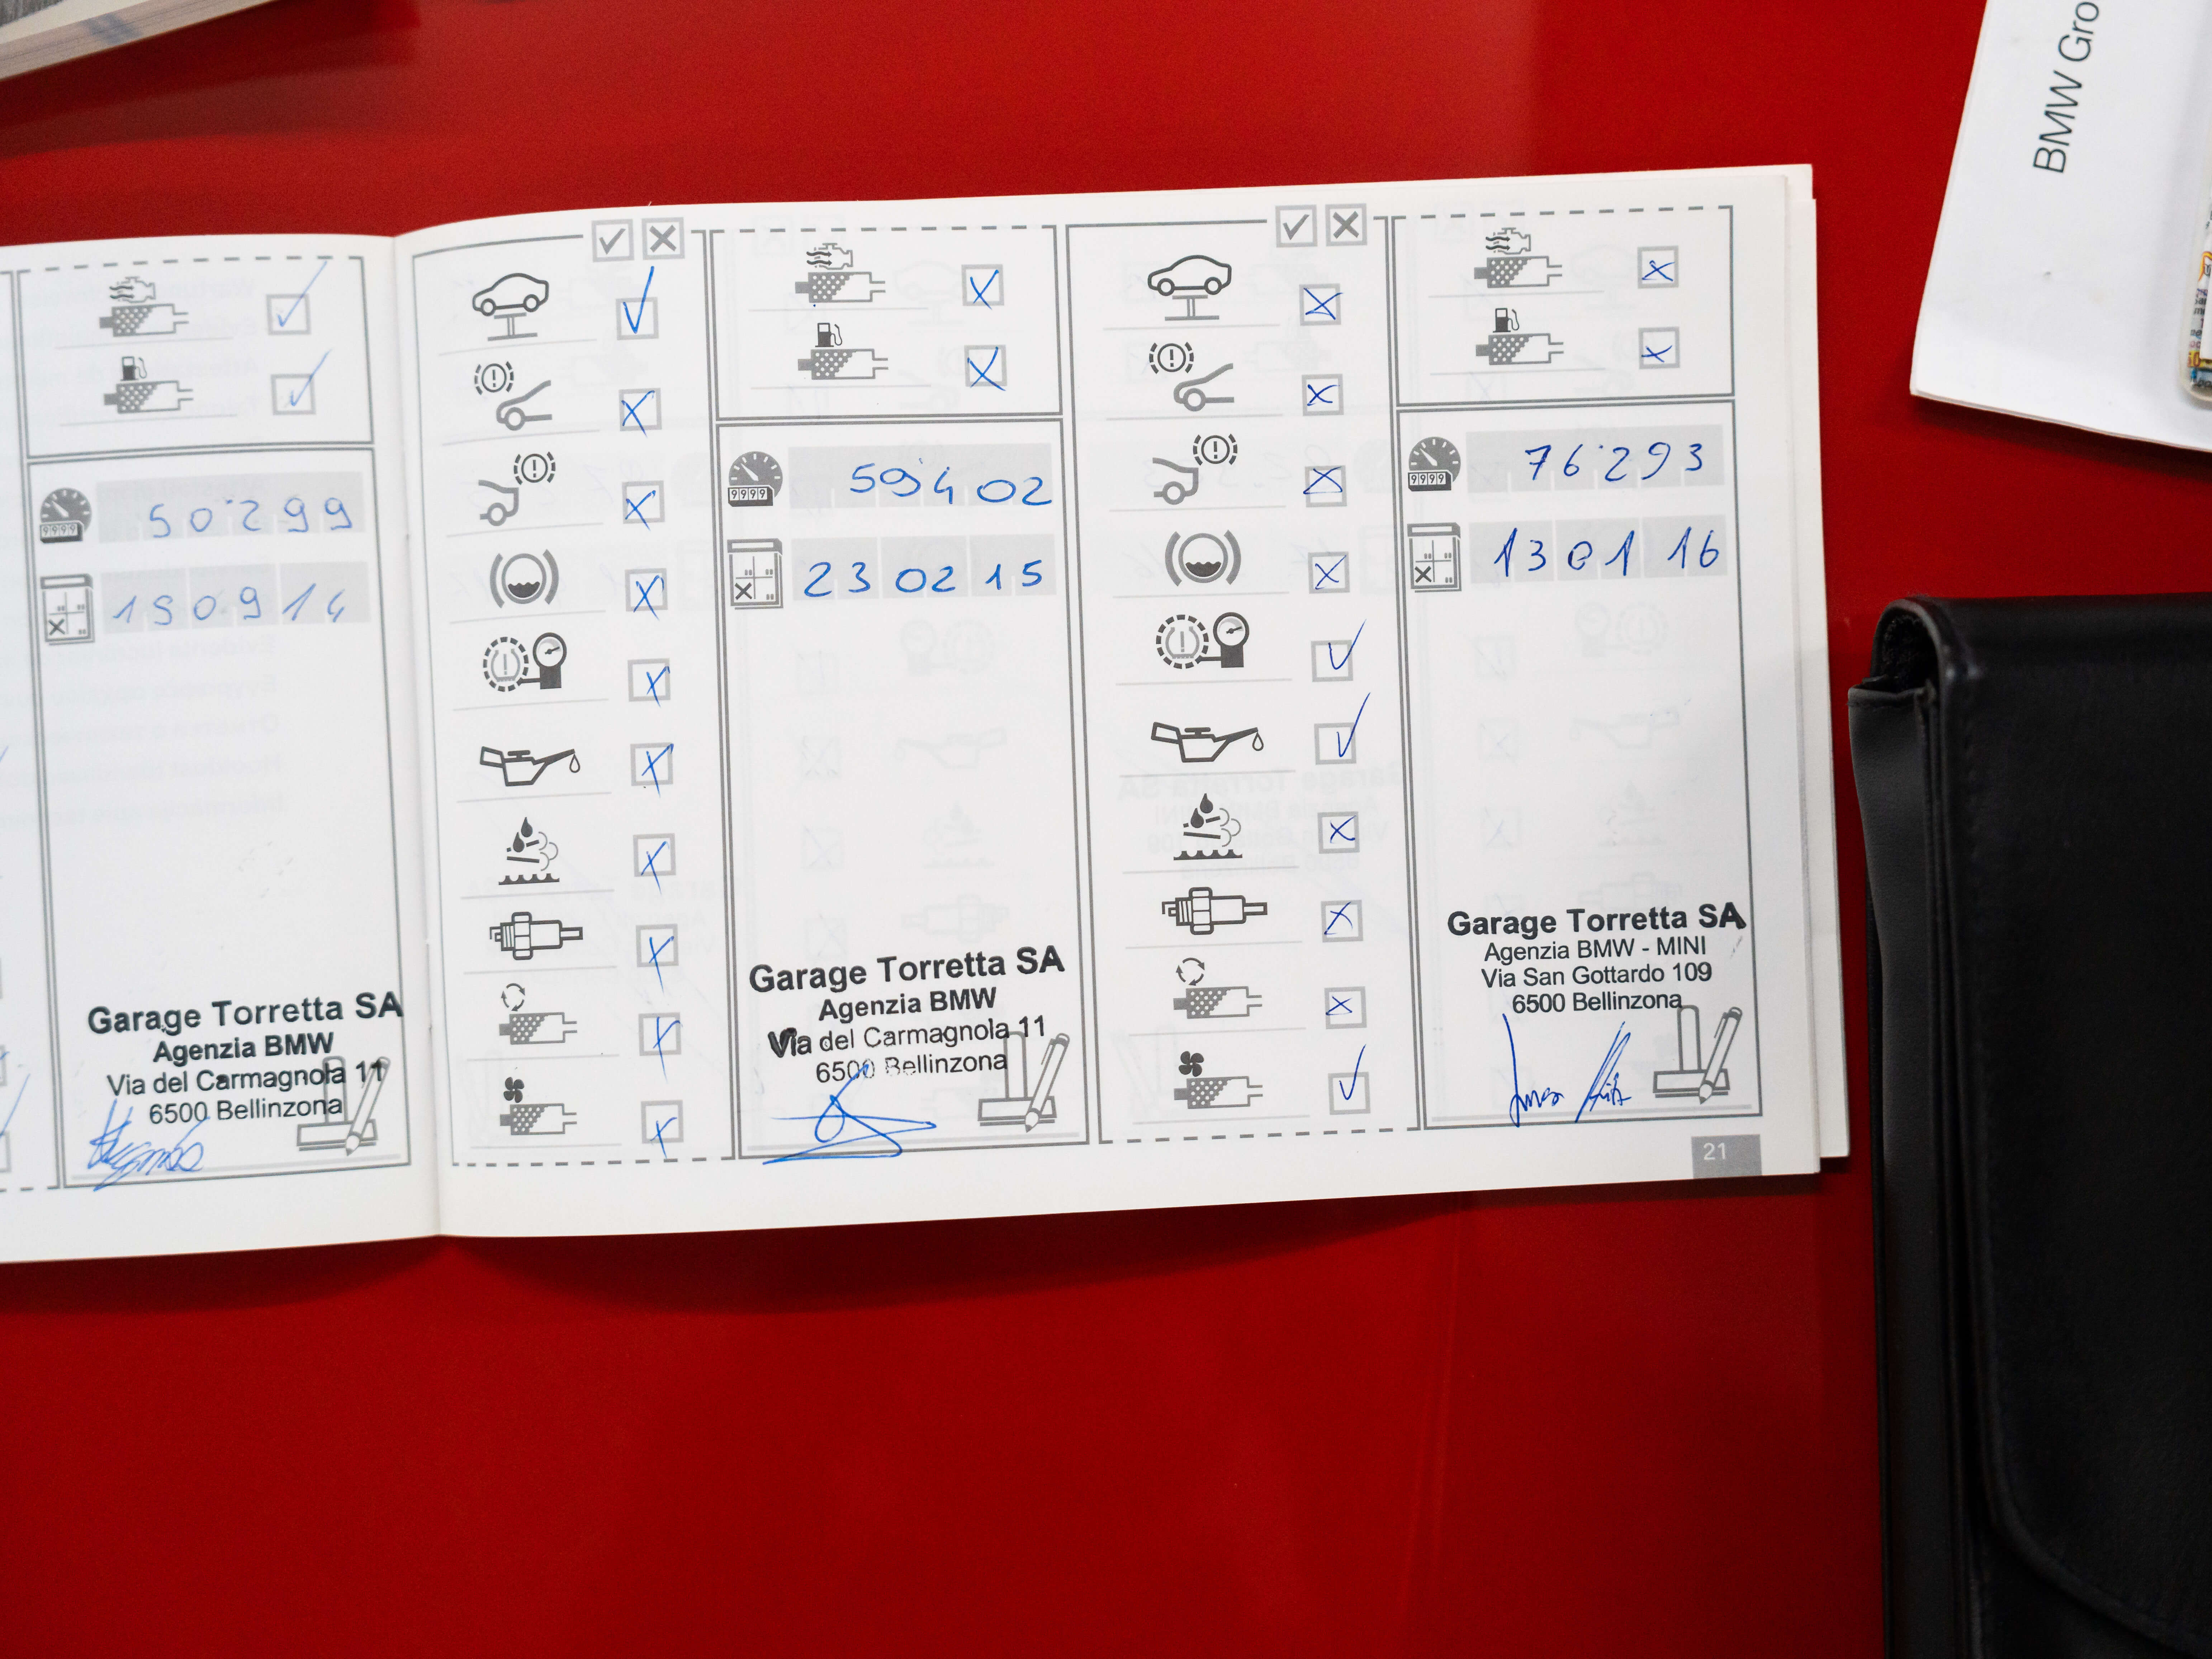 BMW Gro
50·299
150914
Garage Torretta SA
Agenzia BMW
Via del Carmagnola 11
6500 Bellinzona
59·402
23 02 15
Garage Torretta SA
Agenzia BMW
Via del Carmagnola 11
6500 Bellinzona
76·293
130116
Garage Torretta SA
Agenzia BMW - MINI
Via San Gottardo 109
6500 Bellinzona
21